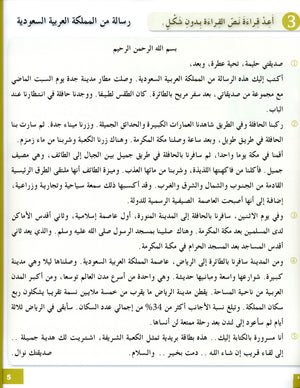 3 أعِدْ قِرَاءَةَ نَصّ القِرَاءَةِ بِدونِ شَكْلٍ. رسالة من المملكة العربية السعودية
بسم الله الرحمن الرحيم
صديقتي حليمة، تحية عطرة، وبعد،
أكتب إليك هذه الرسالة من المملكة العربية السعودية. وصلت مطار مدينة جدة يوم السبت الماضي
مع مجموعة من صديقاتي، بعد سفر مريح بالطائرة. كان الطقس لطيفا. ووجدنا حافلة في انتظارنا عند
الباب.
ركبنا الحافلة وفي الطريق شاهدنا العمارات الكبيرة والحدائق الجميلة. وزرنا ميناء جدة. ثم سارت بنا
الحافلة في طريق طويل، وبعد ساعة وصلنا مكة المكرمة. وهناك زرنا الكعبة وشربنا من ماء زمزم.
أقمنا في مكة يوما واحدا، ثم سافرنا بالحافلة في طريق جميل بين الجبال إلى الطائف، وهي مصيف
جميل. فأكلنا من فاكهتها اللذيذة، وشربنا من مائها العذب. وميزة الطائف أنها ملتقى الطرق الرئيسية
القادمة من الجنوب والشمال والشرق والغرب. وقد أكسبها ذلك سمعة سياحية وتجارية وزراعية،
إضافة إلى أنها أصبحت العاصمة الصيفية الرسمية للدولة.
وفي يوم الاثنين، سافرنا بالحافلة إلى المدينة المنورة، أول عاصمة إسلامية، وثاني أقدس الأماكن
لدى المسلمين بعد مكة المكرمة. وهناك صلينا بمسجد الرسول صلى الله عليه وسلم. والذي يعد ثاني
أقدس المساجد بعد المسجد الحرام في مكة المكرمة.
ومن المدينة سافرنا بالطائرة إلى الرياض، عاصمة المملكة العربية السعودية. وصلناها ليلا وهي مدينة
كبيرة. شوارعها واسعة ومبانيها حديثة. وهي واحدة من أسرع مدن العالم توسعا، ومن أكبر المدن
العربية من ناحية المساحة. يقطن مدينة الرياض ما يقرب من خمسة ملايين نسمة تقريبا يشكلون ربع
سكان المملكة. وتبلغ نسبة الأجانب أكثر من 34% من إجمالي عدد السكان. سأبقى في الرياض ثلاثة
أيام ثم سأعود إلى لندن بعد رحلة ممتعة لن أنساها.
أنا مسرورة بالكتابة إليك.. هذه بطاقة بريدية تمثل الكعبة الشريفة، اشتريت لك هدية جميلة ..
إلى لقاء قريب إن شاء الله .. دمت بخير .. والسلام. صديقتك نوال.
5